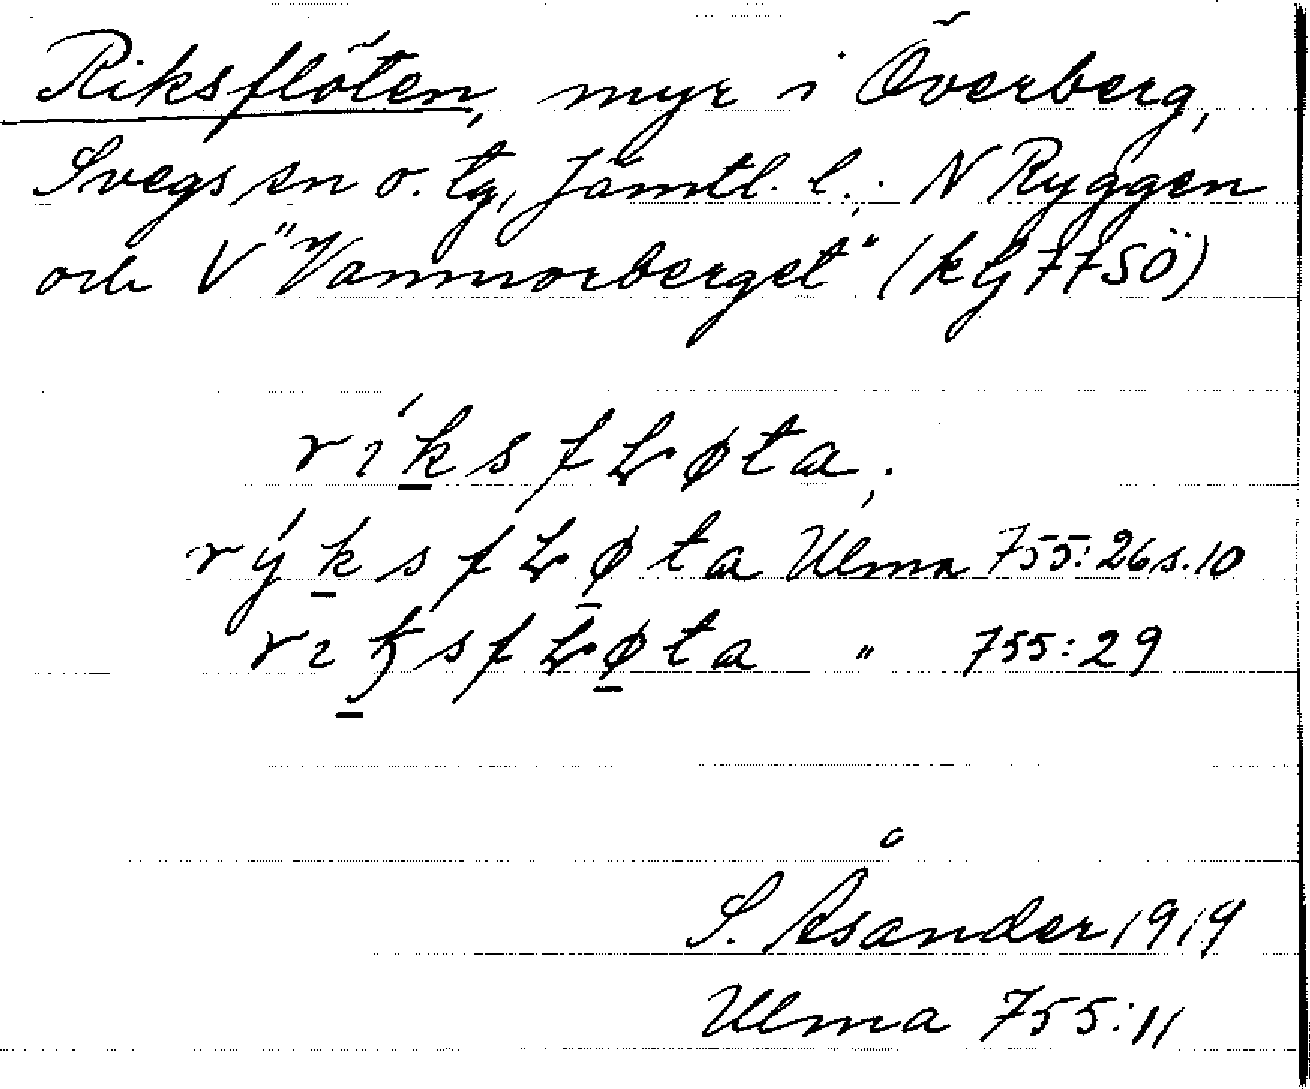 Riksflöten, myr i Överberg,
Svegs sn o. tg, Jämtl. l.; N Ryggen
och V "Vammorberget" (kbl 77SÖ)
ríksfLøta,;
rýksfLøta Ulma 755:26s.10
riksfLøta " 755:29
S. Åsander 1919
Ulma 755:11